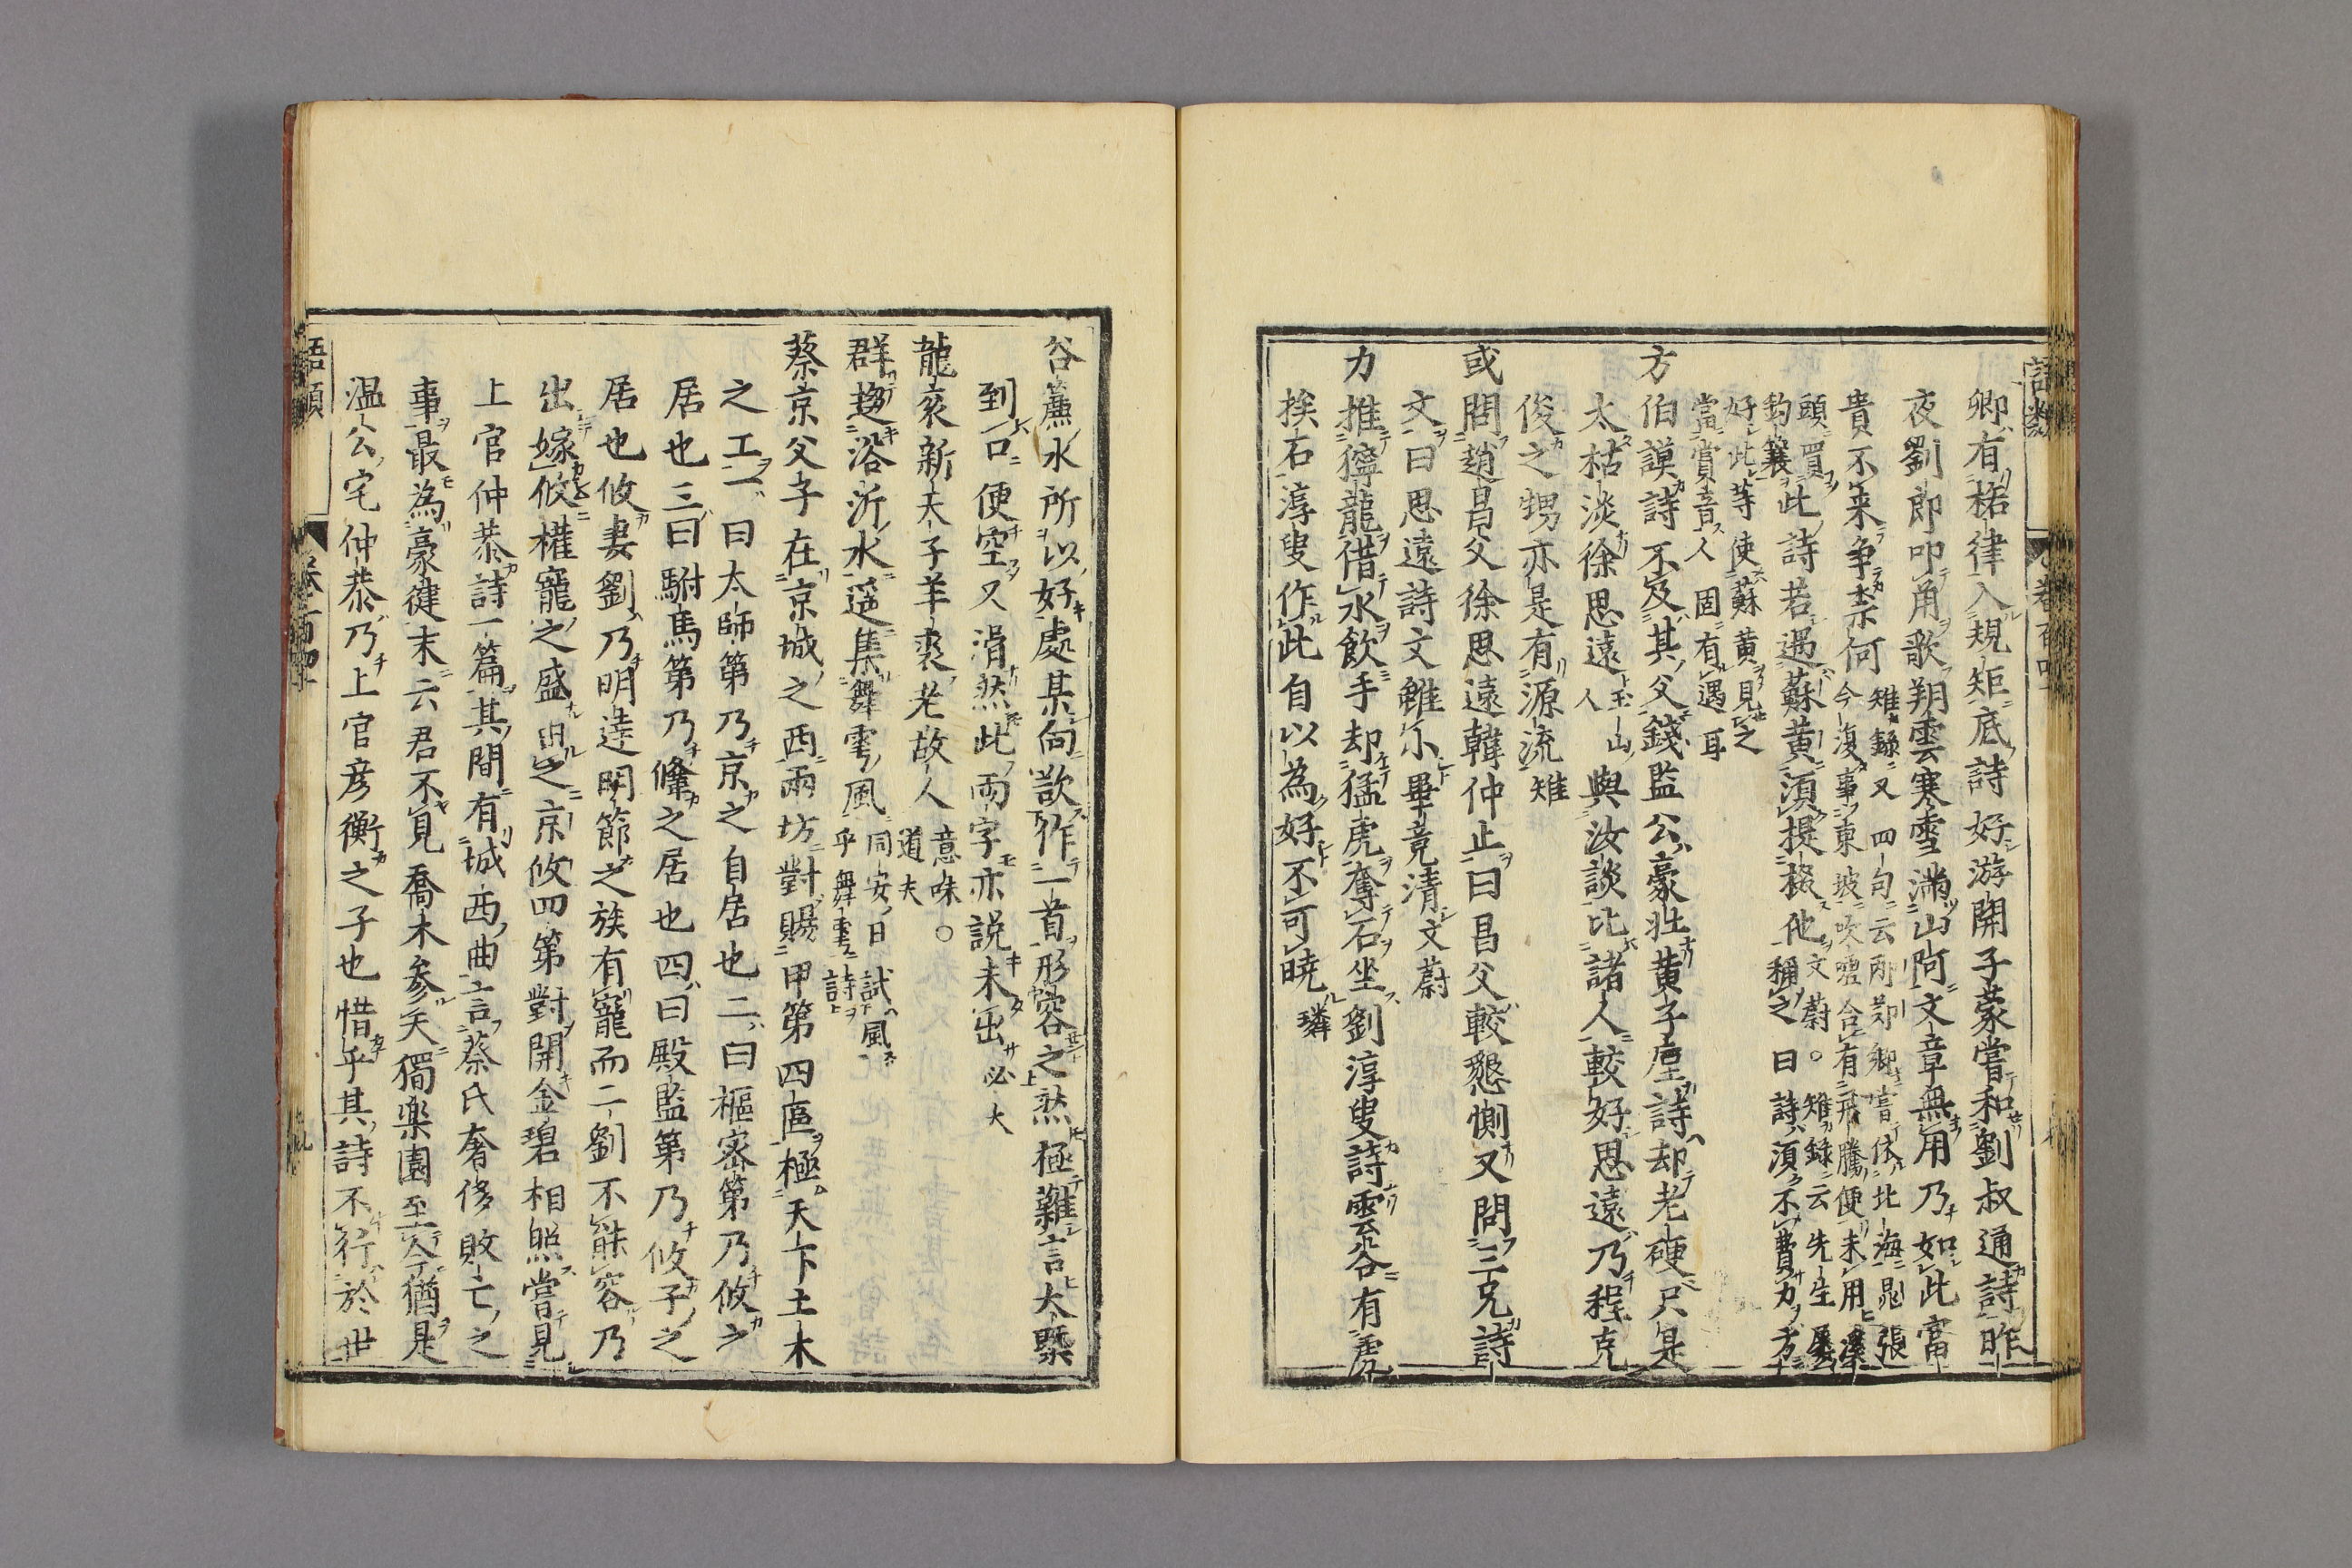 卿有格律入規矩底詩好游開子蒙嘗和劉叔通詩昨
夜劉郎叩角歌朔雲寒雪滿山阿文章無用乃如此富
貴不来争柰何
雉錄又四句云
卿嘗依北海晁張
今復事東坡吹噓合有飛騰便未用
頭買此詩若遇蘇黄湏提掇他文蔚○雉錄云先生屢
稱之曰詩湏不費力方
好此等使蘇黄見之
當賞音人固有遇耳
方伯謨詩不及其父錢監公豪壯黄子厚詩却老硬只是
太枯淡徐思遠玉山人與汝談比諸人較好思遠乃程克
俊之甥亦是有源流雉
或問趙昌父徐思遠韓仲止曰昌父較懇惻又問三兄詩
文曰思遠詩文雖小畢竟清文蔚
力推獰龍借水飲手却猛虎奪石坐劉淳叟詩雲谷有虎
挨石淳叟作此自以為好不可曉璘
谷簾水所以好處某向欲作一首形容之然極難言大槩
到口便空又滑然此兩字亦説未出必大
龍衮新天子羊裘老故人意味道夫○
群趨浴沂水遥集舞雩風同安日試風乎舞雩詩
蔡京父子在京城之西兩坊對賜甲第四區極天下土木
之工一曰太師第乃京之自居也二曰樞密第乃攸之
居也三曰駙馬第乃鞗之居也四曰殿監第乃攸子之
居也攸妻劉乃明達明節之族有寵而二劉不能容乃
出嫁攸權寵之盛由之京攸四第對開金碧相照嘗見
上官仲恭詩一篇其間有城西曲言蔡氏奢侈敗亡之
事最為豪健末云君不見喬木參天獨楽園至今猶是
温公宅仲恭乃上官彦衡之子也惜乎其詩不行於世
語類